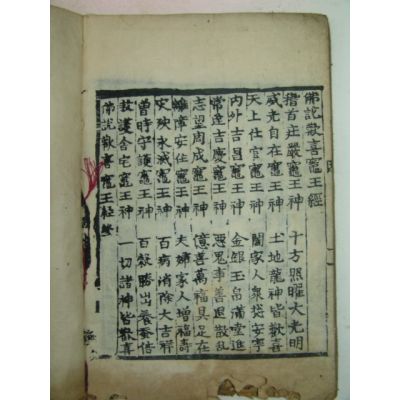 佛說歡喜竈王經
稽首莊嚴竈王神 十方照曜大光明
威光自在竈王神 土地龍神皆歡喜
天上仕官竈王神 闔家人衆㧾安寧
內外吉昌竈王神 金銀玉帛滿堂進
常逹吉慶竈王神 惡鬼事善退散乱
志望周成竈王神 億善萬福具足在
離障安住竈王神 夫婦家人增福壽
灾殃永滅竈王神 百病消除大吉祥
曾時守護竈王神 百穀勝出養蚕倍
救護舍宅竈王神 一切諸神皆歡喜
佛說歡喜竈王経終